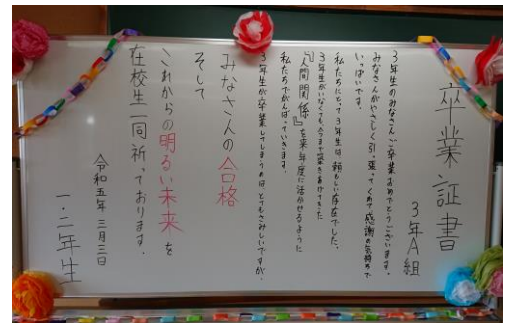 卒業証書
3年A組
3年生のみなさん、ご卒業おめでとうございます。
みなさんがやさしく引っ張ってくれて感謝の気持ちで
いっぱいです。
私たちにとって3年生は頼もしい存在でした。
3年生がいなくても、今まで築きあげてきた
『人間関係』を来年度に活かせるように
私たちでがんばっていきます。
3年生が卒業してしまうのはとてもさみしいですが、
みなさんの合格
そして
これからの明るい未来を
在校生一同祈っております。
令和五年 三月三日
一・二年生